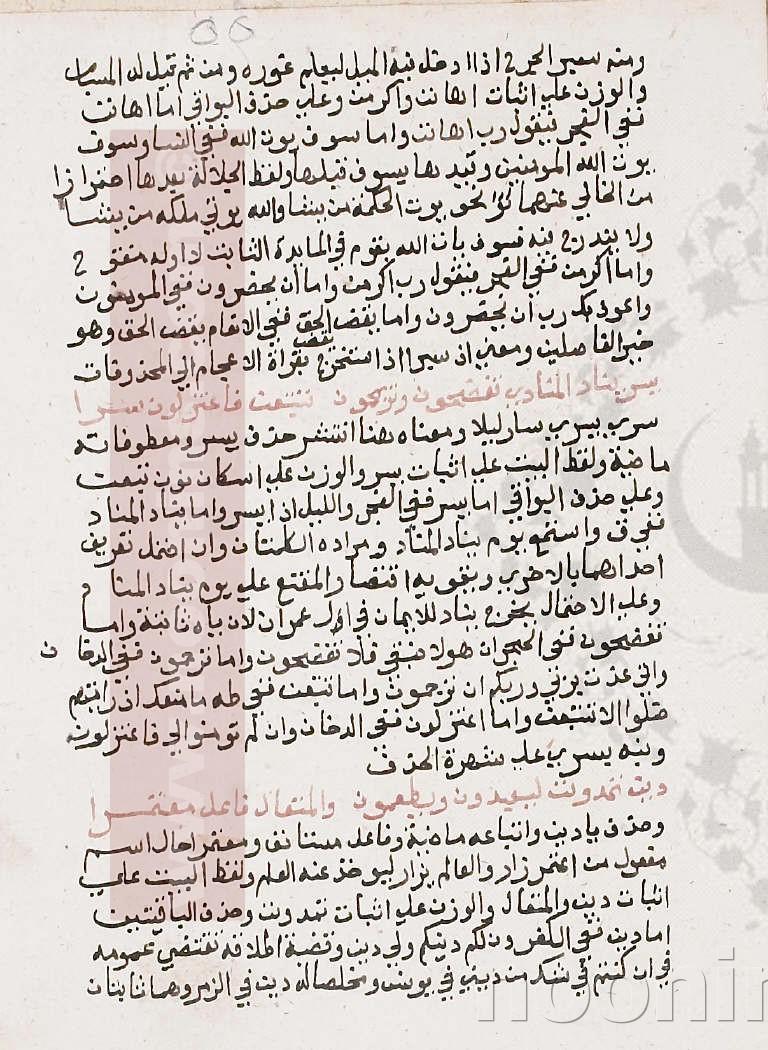 ومنه سعير الجرح اذا ادخل فيه الميل ليعلم غوره ومن ثم قيل له المسبار
والوزن علي اثبات اهانت واكرمت وعلي حذف البواقي اما اهانت
ففي الفجر فيقول رب اهانت واما سوف يوت الله ففي النسا وسوف
يوت الله المومنين وقيدها بسوف قبلها ولفظ الجلالة بعدها احترازا
من الخالي عنهما نحو يوت الحكمة من يشا والله يوتي ملكه من يشا
ولا يندرج فيه فسوف ياتي الله بقوم في المايدة الثابت لان اوله مفتوح
واما اكرمت ففي الفجر فيقول رب اكرمت واما ان يحضرون ففي المومنون
واعوذ بك رب ان يحضرون واما يقض الحق ففي الانعام يقض الحق وهو
خير الفاصلين ومعني ان سبرا اذا استخرج يقض بقراة الاعجام الي المحذوفات
يسر يناد المناد تفضحون وترجمون تتبعن فاعتزلون سرا
سري يسري سار ليلا ومعناه هنا انتشر حذف يسر ومعطوفاته
ماضية ولفظ البيت علي اثبات يسر والوزن علي اسكان نون تتبعن
وعلي حذف البواقي اما يسر ففي الفجر والليل اذا يسر واما يناد المناد
ففي ق واستمع يوم يناد المناد ومراده الكلمتان وان احتمل تعريف
احداهما بالاخري ويقويه اقتصار المقنع علي يوم يناد المناد
وعلي الاحتمال يخرج يناد للايمان في ال عمران لان ياه ثابتة واما
تفضحون ففي الحجر ان هولا ضيفي فلا تفضحون واما ترجمون ففي الدخان
واني عذت بربي وربكم ان ترجمون واما تتبعن ففي طه ما منعك اذ رايتهم
ضلوا الا تتبعن واما اعتزلون ففي الدخان وان لم تومنوا لي فاعتزلون
ونبه بسري علي شهرة الحذف
دين تمدونن ليعبدون ويطعمون والمتعال فاعل معتمرا
وحذف يا دين واتباعه ماضية وفاعل مستانف ومعتمرا حال اسم
مفعول من اعتمر زار والعالم يزار ليوخذ عنه العلم ولفظ البيت علي
اثبات دين والمتعال والوزن علي اثبات تمدونن وحذف الباقيتين
اما دين ففي الكفرون لكم دينكم ولي دين وقضية اطلاقه تقتضي عمومه
في ان كنتم في شك من ديني في يونس ومخلصا له ديني في الزمر وهما ثابتان